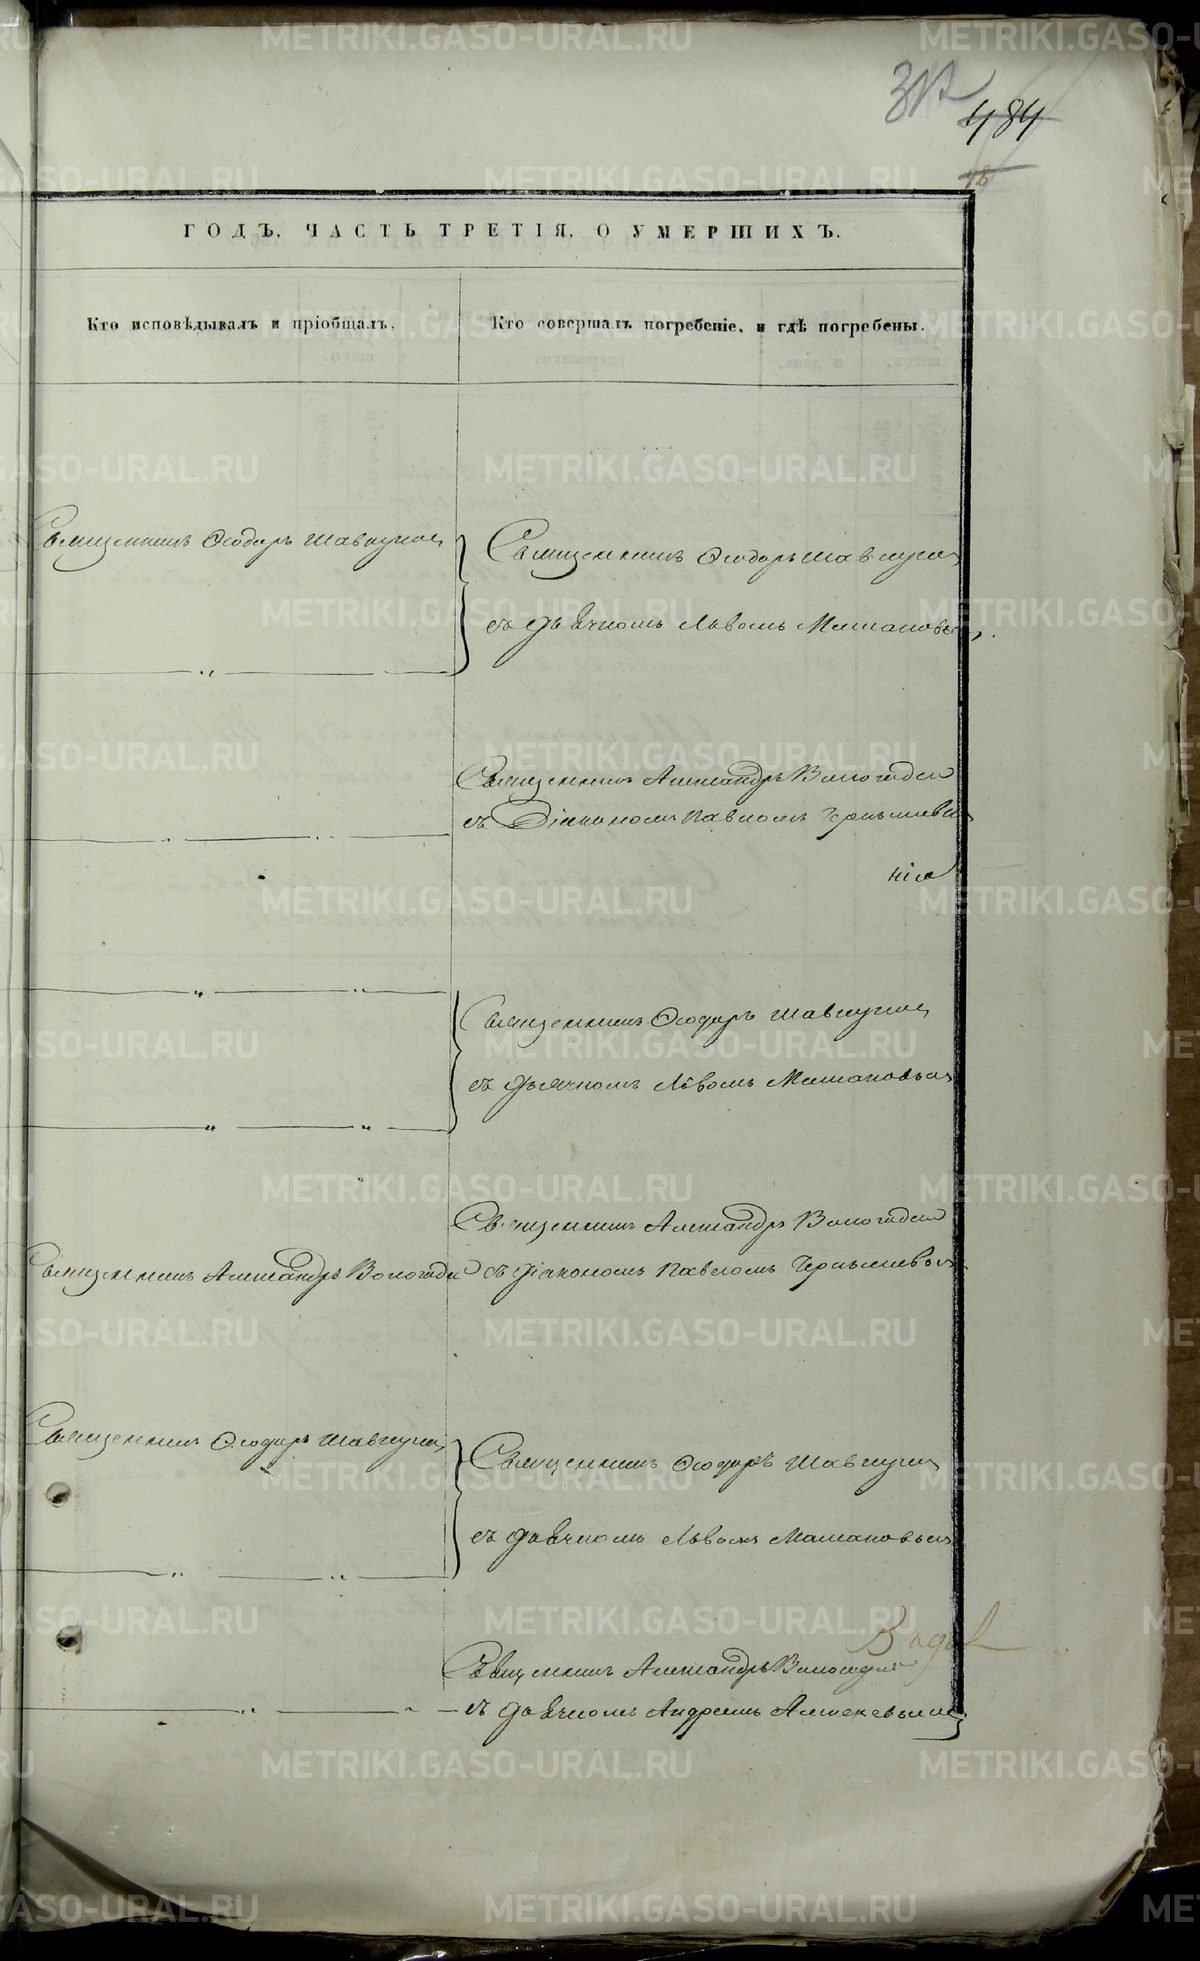 484
ГОДЪ, ЧАСТЬ ТРЕТІЯ, О УМЕРШИХЪ.
Кто исповѣдывалъ и пріобщалъ.
Кто совершалъ погребеніе, и гдѣ погребены.
Священникъ Ѳеодоръ Шавкунов
Священникъ Ѳеодоръ Шавкунов
съ дьячкомъ Львомъ Машановым
Священникъ Александръ Вологодск
съ Діакономъ Павломъ Чернышевым
Священникъ Ѳеодоръ Шавкунов
съ дьячкомъ Львомъ Машановым
Священникъ Александръ Вологодск
Священникъ Александръ Вологодск
съ діакономъ Павломъ Чернышевым
Священникъ Ѳеодоръ Шавкунов
Священникъ Ѳеодоръ Шавкунов
съ дьячкомъ Львомъ Машановым
Священникъ Александръ Вологодск
съ дьячкомъ Андреемъ
METRIKI.GASO-URAL.RU